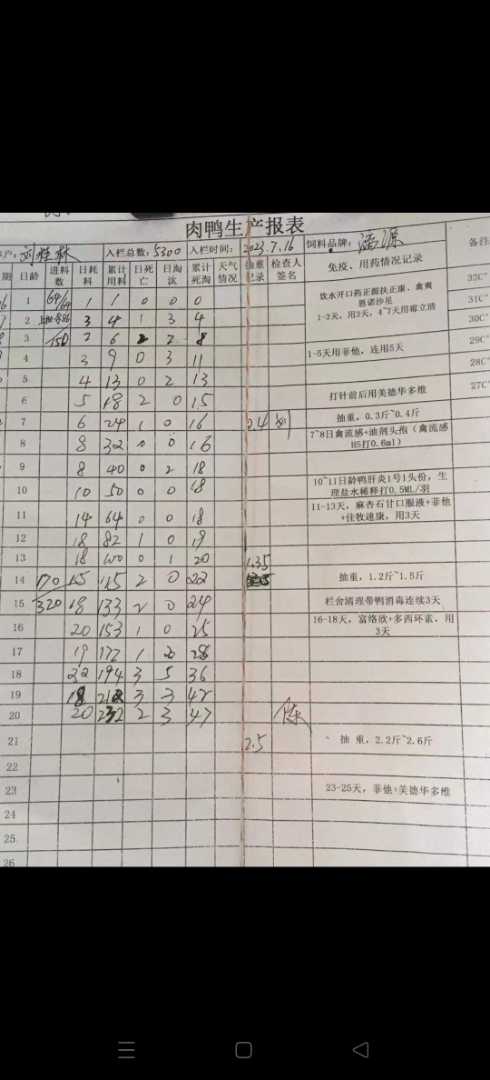 肉鸭生产报表
入栏总数: 5300 入栏时间: 2023.7.16 饲料品牌: 备注
期 日龄 进料数 日耗料 累计用料 日死亡 日淘汰 累计死淘 天气情况 抽重记录 检查人签名 免疫、用药情况记录
1 64/64 1 1 0 0 0 32C°
饮水开口药正源扶正康、禽爽
恩诺沙星
2 3 4 1 3 4 1-2天,用3天,4~7天用 31C°
3 150 2 6 2 2 8 30C°
4 3 9 0 3 11 1-5天用菲他,连用5天 29C°
5 4 13 0 2 13 28C°
6 5 18 2 0 15 打针前后用美德华多维 27C°
7 6 24 1 0 16 抽重,0.3斤~0.4斤
8 8 32 0 0 16 7~8日禽流感+油剂头孢(禽流感
H5打0.6ml)
9 8 40 0 2 18
10 10 50 0 0 18 10~11日龄鸭肝炎1号1头份,生
理盐水稀释打0.5ML/羽
11 14 64 0 0 18 11-13天,麻杏石甘口服液+菲他
+佳牧速康,用3天
12 18 82 1 0 19
13 18 100 0 1 20 1.35
14 170 15 115 2 0 22 抽重,1.2斤~1.5斤
15 320 18 133 2 0 24 栏舍清理带鸭消毒连续3天
16 20 153 1 0 25 16-18天,富络欣+多西环素,用
3天
17 19 172 1 2 28
18 22 194 3 5 36
19 18 212 3 3 42
20 20 232 2 3 47
21 2.5 抽重,2.2斤~2.6斤
22
23 23-25天,菲他+美德华多维
24
25
26